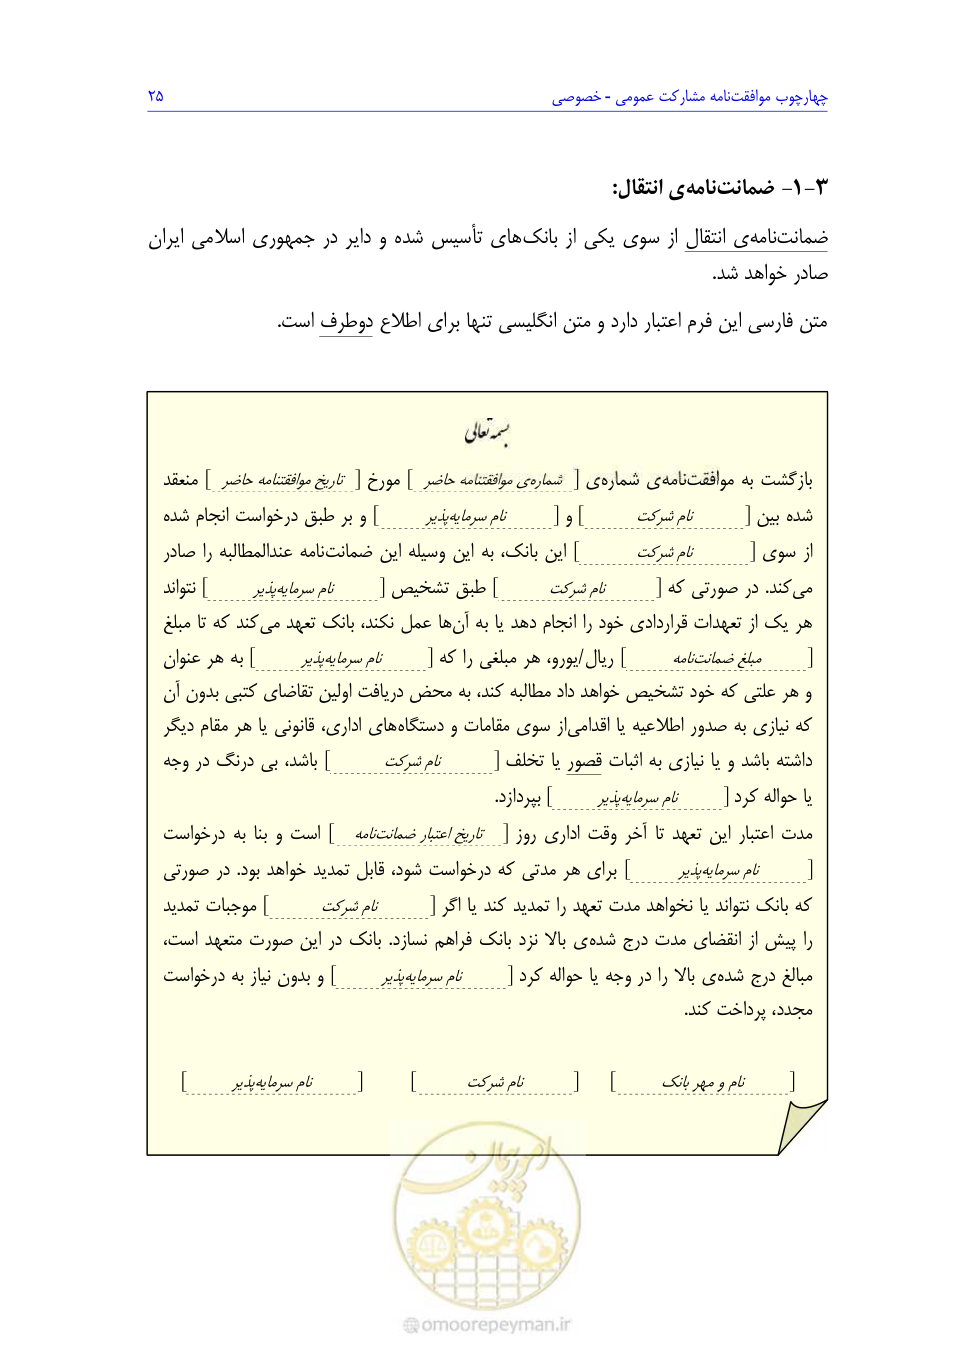 چهارچوب موافقت‌نامه مشارکت عمومی - خصوصی ۲۵
۳-۱- ضمانت‌نامه‌ی انتقال:
ضمانت‌نامه‌ی انتقال از سوی یکی از بانک‌های تأسیس شده و دایر در جمهوری اسلامی ایران
صادر خواهد شد.
متن فارسی این فرم اعتبار دارد و متن انگلیسی تنها برای اطلاع دوطرف است.
بسمه تعالی
بازگشت به موافقت‌نامه‌ی شماره‌ی [ شماره‌ی موافقتنامه حاضر ] مورخ [ تاریخ موافقتنامه حاضر ] منعقد
شده بین [ نام شرکت ] و [ نام سرمایه‌پذیر ] و بر طبق درخواست انجام شده
از سوی [ نام شرکت ] این بانک، به این وسیله این ضمانت‌نامه عندالمطالبه را صادر
می‌کند. در صورتی که [ نام شرکت ] طبق تشخیص [ نام سرمایه‌پذیر ] نتواند
هر یک از تعهدات قراردادی خود را انجام دهد یا به آن‌ها عمل نکند، بانک تعهد می‌کند که تا مبلغ
[ مبلغ ضمانت‌نامه ] ریال/یورو، هر مبلغی را که [ نام سرمایه‌پذیر ] به هر عنوان
و هر علتی که خود تشخیص خواهد داد مطالبه کند، به محض دریافت اولین تقاضای کتبی بدون آن
که نیازی به صدور اطلاعیه یا اقدامی‌از سوی مقامات و دستگاه‌های اداری، قانونی یا هر مقام دیگر
داشته باشد و یا نیازی به اثبات قصور یا تخلف [ نام شرکت ] باشد، بی درنگ در وجه
یا حواله کرد [ نام سرمایه‌پذیر ] بپردازد.
مدت اعتبار این تعهد تا آخر وقت اداری روز [ تاریخ اعتبار ضمانت‌نامه ] است و بنا به درخواست
[ نام سرمایه‌پذیر ] برای هر مدتی که درخواست شود، قابل تمدید خواهد بود. در صورتی
که بانک نتواند یا نخواهد مدت تعهد را تمدید کند یا اگر [ نام شرکت ] موجبات تمدید
را پیش از انقضای مدت درج شده‌ی بالا نزد بانک فراهم نسازد. بانک در این صورت متعهد است،
مبالغ درج شده‌ی بالا را در وجه یا حواله کرد [ نام سرمایه‌پذیر ] و بدون نیاز به درخواست
مجدد، پرداخت کند.
[ نام و مهر بانک ] [ نام شرکت ] [ نام سرمایه‌پذیر ]
امور پیمان
@omoorepeyman.ir